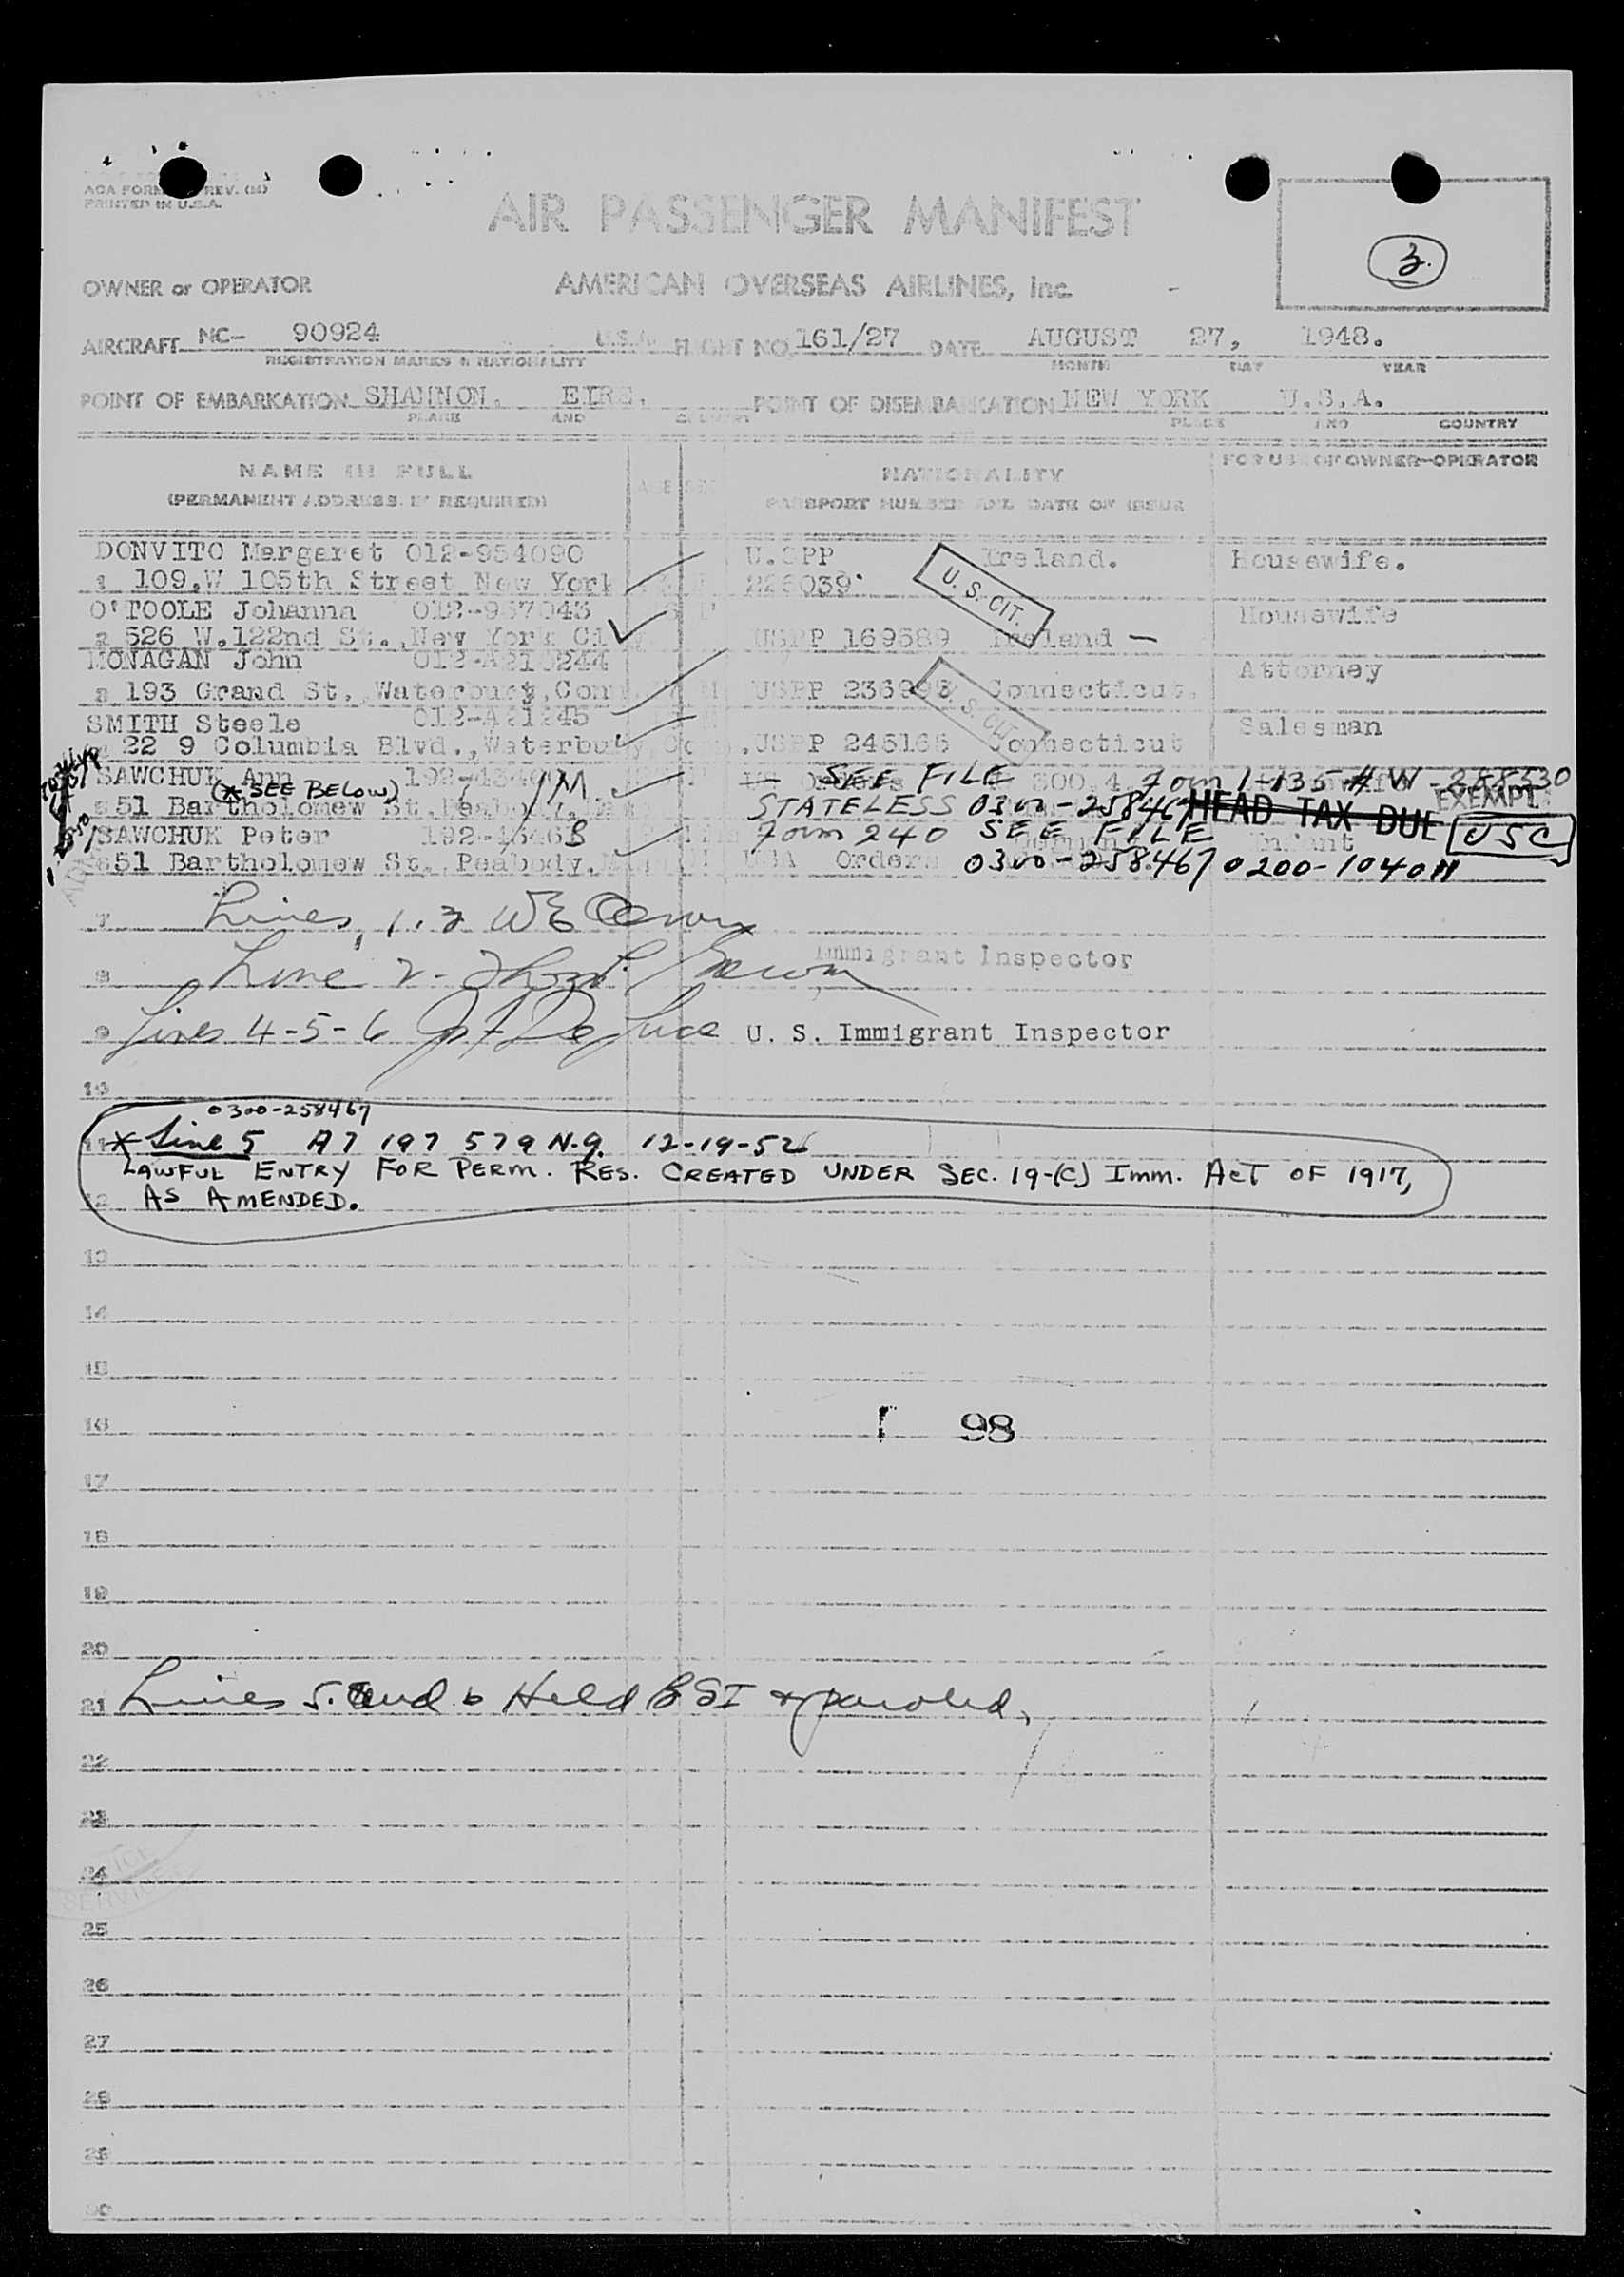 ACA FORM REV. (M)
PRINTED IN U.S.A.
AIR PASSENGER MANIFEST
3.
OWNER or OPERATOR AMERICAN OVERSEAS AIRLINES, Inc.
AIRCRAFT NC- 90924 U.S.A. FLIGHT NO. 161/27 DATE AUGUST 27, 1948.
REGISTRATION MARKS & NATIONALITY MONTH DAY YEAR
POINT OF EMBARKATION SHANNON. EIRE. POINT OF DISEMBARKATION NEW YORK U.S.A.
PLACE AND COUNTRY PLACE AND COUNTRY
NAME IN FULL
(PERMANENT ADDRESS IF REQUIRED)
AGE SEX
NATIONALITY
PASSPORT NUMBER AND DATE OF ISSUE
FOR USE OF OWNER-OPERATOR
DONVITO Margaret 012-954090 U.SPP Ireland. Housewife.
109.W 105th Street New York 226039
U. S. CIT.
O'TOOLE Johanna 012-957043 Housewife
526 W.122nd St., New York City USPP 169589 Ireland —
MONAGAN John Attorney
193 Grand St., Waterbury, Conn USPP Connecticut.
U. S. CIT.
SMITH Steele Salesman
22 9 Columbia Blvd., Waterbury Conn.USPP 245165 Connecticut
SAWCHUK Ann (* SEE BELOW) M SEE FILE 300.4 Form 1-135 # W-288530
51 Bartholomew St. Peabody, STATELESS 0300-258467 HEAD TAX DUE EXEMPT
SAWCHUK Peter B Form 240 SEE FILE Infant USC
51 Bartholomew St. Peabody, Orders 0300-258467 0200-104011
7 Lines, 1.3
Immigrant Inspector
8 Line 2-
9 Lines 4-5-6 U. S. Immigrant Inspector
10
0300-258467
11 * Line 5 A7 197 579 N.Y. 12-19-52
LAWFUL ENTRY FOR PERM. RES. CREATED UNDER SEC. 19-(C) Imm. ACT OF 1917,
12 AS AMENDED.
13
14
15
16 98
17
18
19
20
21 Lines 5. and 6 Held BSI & paroled,
22
23
24
25
26
27
28
29
30